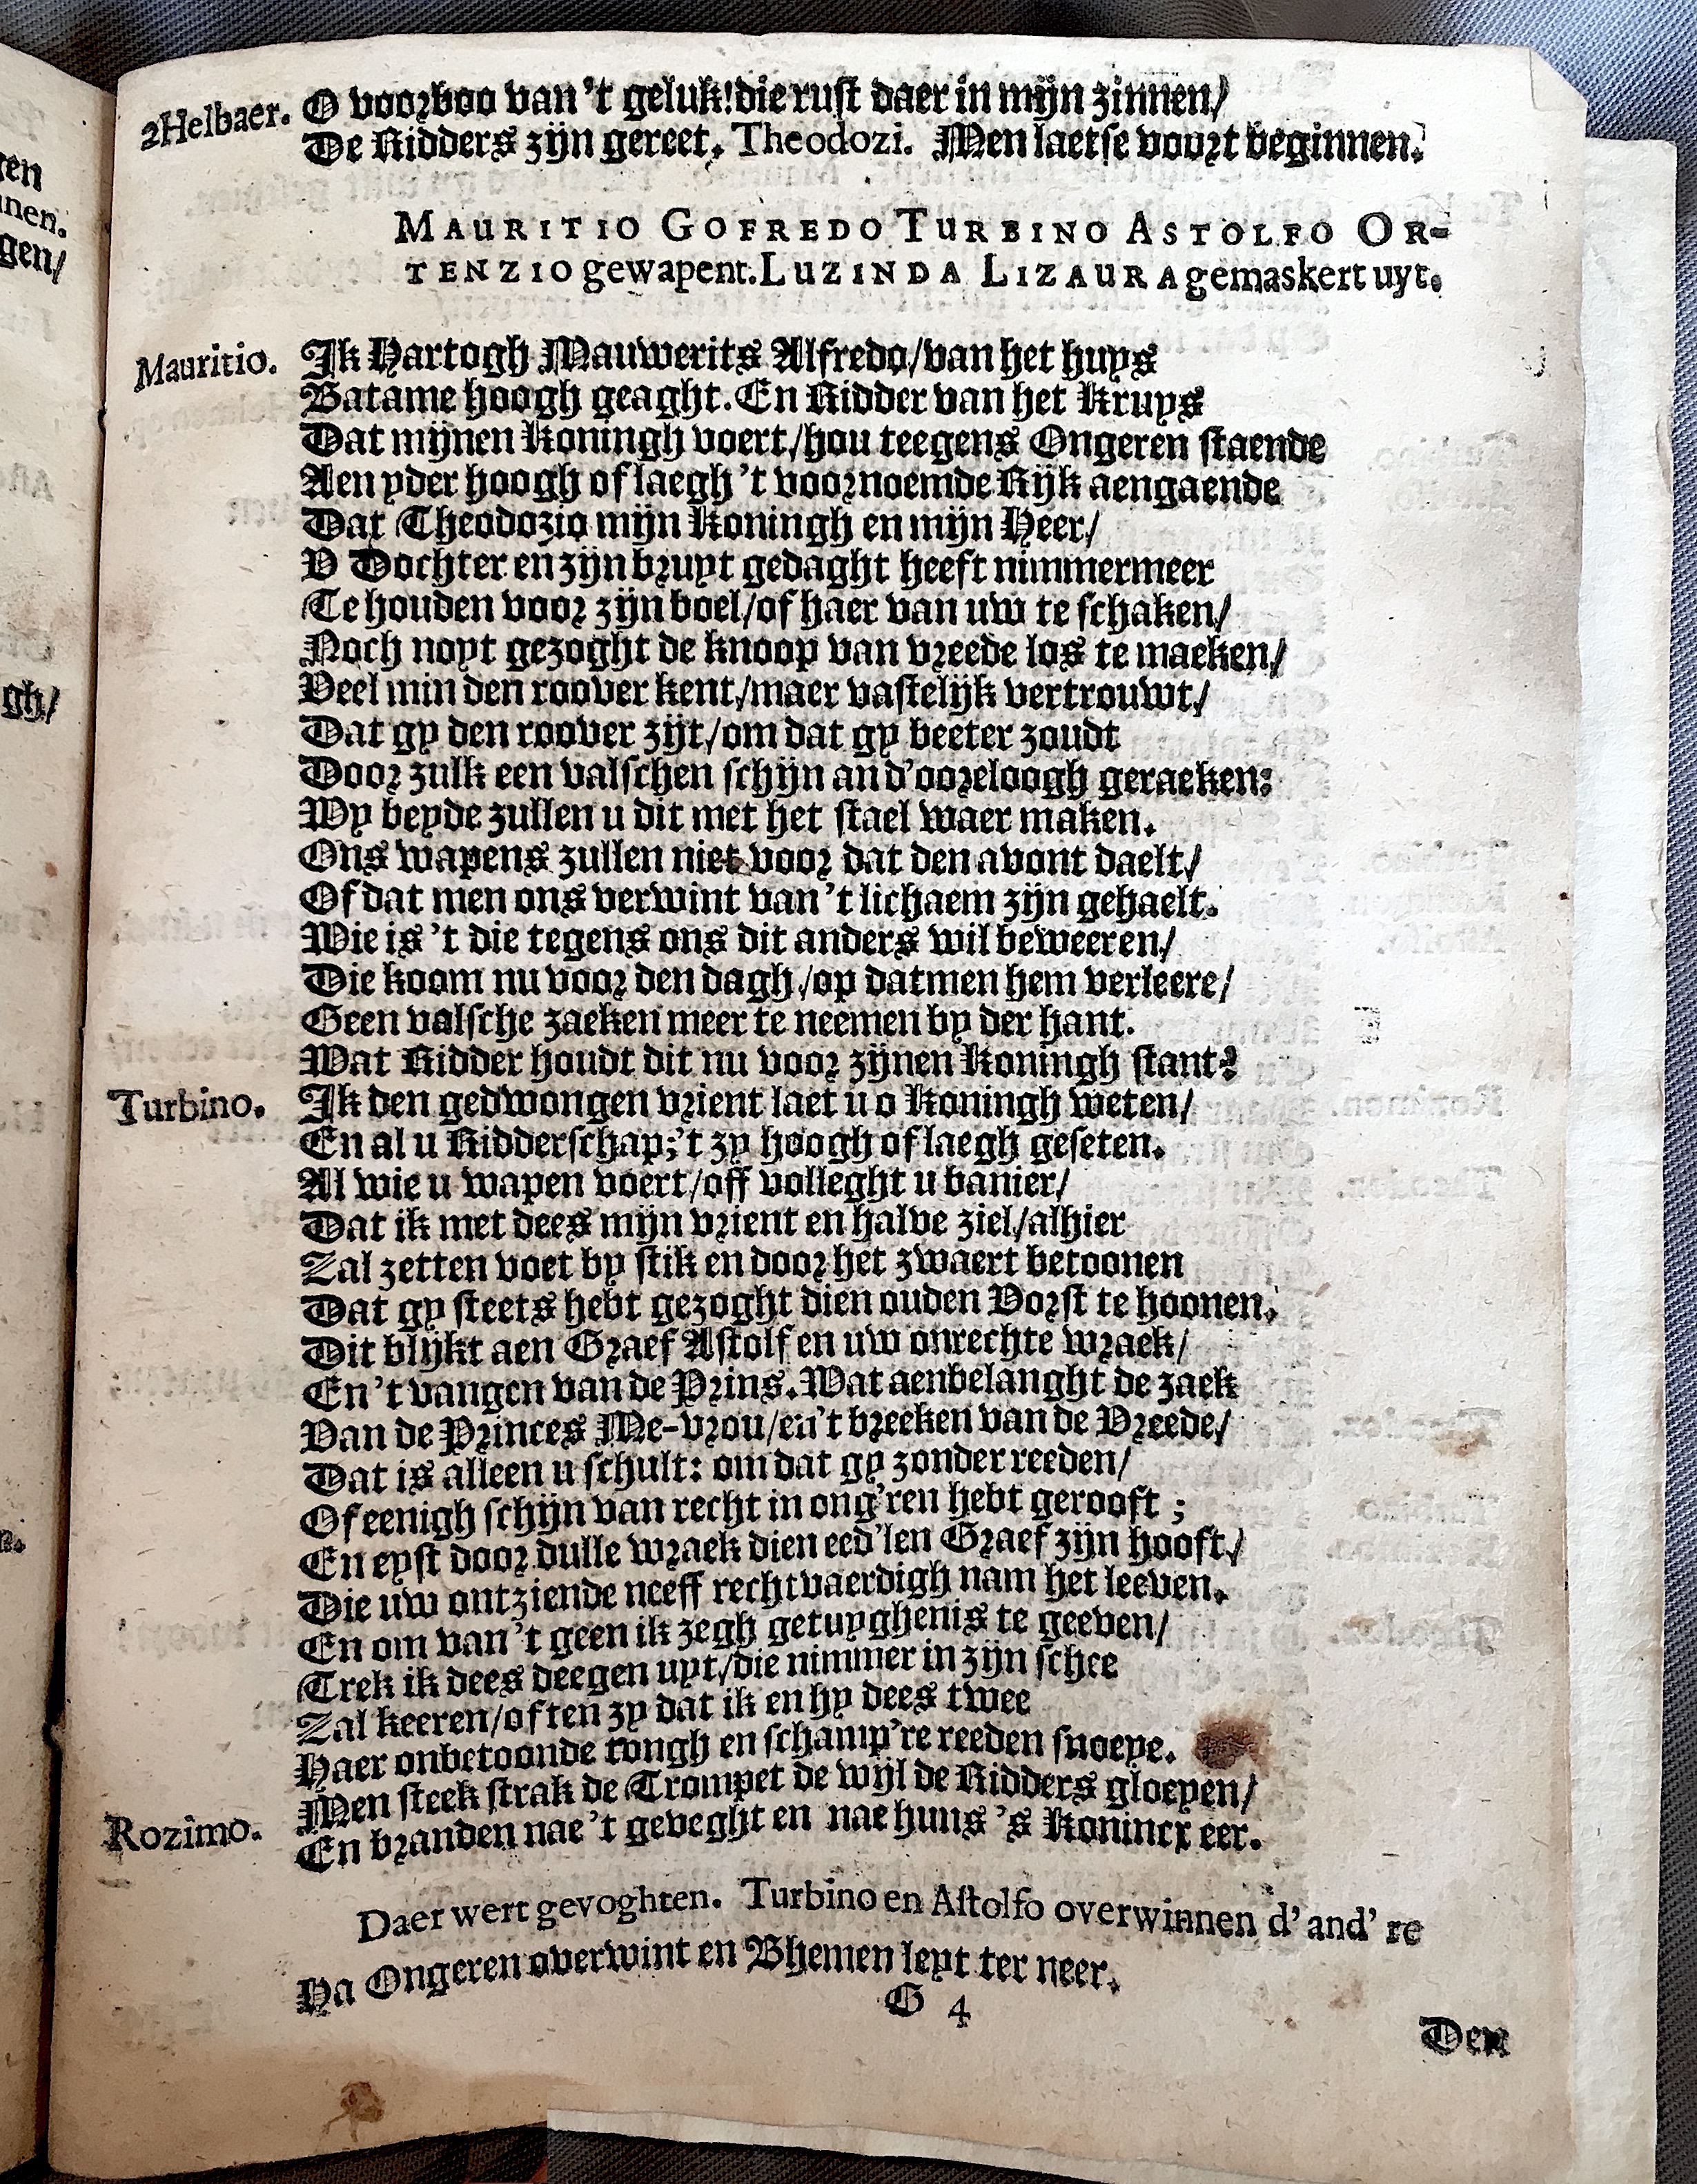 2Helbaer. O voorboo van 't geluk! die rust daer in mijn zinnen/
De Ridders zijn gereet. Theodozi. Men laetse voort beginnen.
MAURITIO GOFREDO TURBINO ASTOLFO OR-
TENZIO gewapent. LUZINDA LIZAURA gemaskert uyt.
Mauritio. Ik Hartogh Mauwerits Alfredo/van het huys
Batame hoogh geaght. En Ridder van het Kruys
Dat mijnen Koningh voert/hou teegens Ongeren staende
Aen yder hoogh of laegh 't voornoemde Rijk aengaende
Dat Theodozio mijn Koningh en mijn Heer/
V Dochter en zijn bruyt gedaght heeft nimmermeer
Te houden voor zijn boel/of haer van uw te schaken/
Noch noyt gezoght de knoop van vreede los te maeken/
Veel min den roover kent/maer vastelijk vertrouwt/
Dat gy den roover zijt/om dat gy beeter zoudt
Door zulk een valschen schijn an d'ooreloogh geraeken:
Wy beyde zullen u dit met het stael waer maken.
Ons wapens zullen niet voor dat den avont daelt/
Of dat men ons verwint van 't lichaem zijn gehaelt.
Wie is 't die tegens ons dit anders wil beweeren/
Die koom nu voor den dagh/op datmen hem verleere/
Geen valsche zaeken meer te neemen by der hant.
Wat Ridder houdt dit nu voor zijnen Koningh stant?
Turbino. Ik den gedwongen vrient laet u o Koningh weten/
En al u Ridderschap;'t zy hoogh of laegh geseten.
Al wie u wapen voert/off volleght u banier/
Dat ik met dees mijn vrient en halve ziel/alhier
Zal zetten voet by stik en door het zwaert betoonen
Dat gy steets hebt gezoght dien ouden Vorst te hoonen.
Dit blijkt aen Graef Astolf en uw onrechte wraek/
En 't vangen van de Prins. Wat aenbelanght de zaek
Van de Princes Me-vrou/en 't breeken van de Vreede/
Dat is alleen u schult: om dat gy zonder reeden/
Of eenigh schijn van recht in ong'ren hebt gerooft;
En eyst door dulle wraek dien eed'len Graef zijn hooft/
Die uw ontziende neeff rechtvaerdigh nam het leeven.
En om van 't geen ik zegh getuyghenis te geeven/
Trek ik dees deegen uyt/die nimmer in zijn schee
Zal keeren/of ten zy dat ik en hy dees twee
Haer onbetoonde tongh en schamp're reeden snoeye.
Rozimo. Men steek strak de Trompet de wijl de Ridders gloeyen/
En branden nae 't geveght en nae huns 's Konincx eer.
Daer wert gevoghten. Turbino en Astolfo overwinnen d'and're
Ha Ongeren overwint en Bhemen leyt ter neer.
G 4
Den